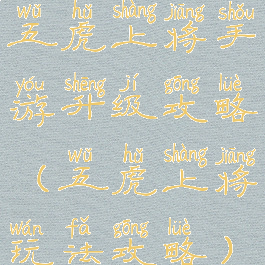 wǔ hǔ shàng jiàng shǒu
五虎上将手
yóu shēng jí gōng lüè
游升级攻略
wǔ hǔ shàng jiàng
（五虎上将
wán fǎ gōng lüè
玩法攻略）